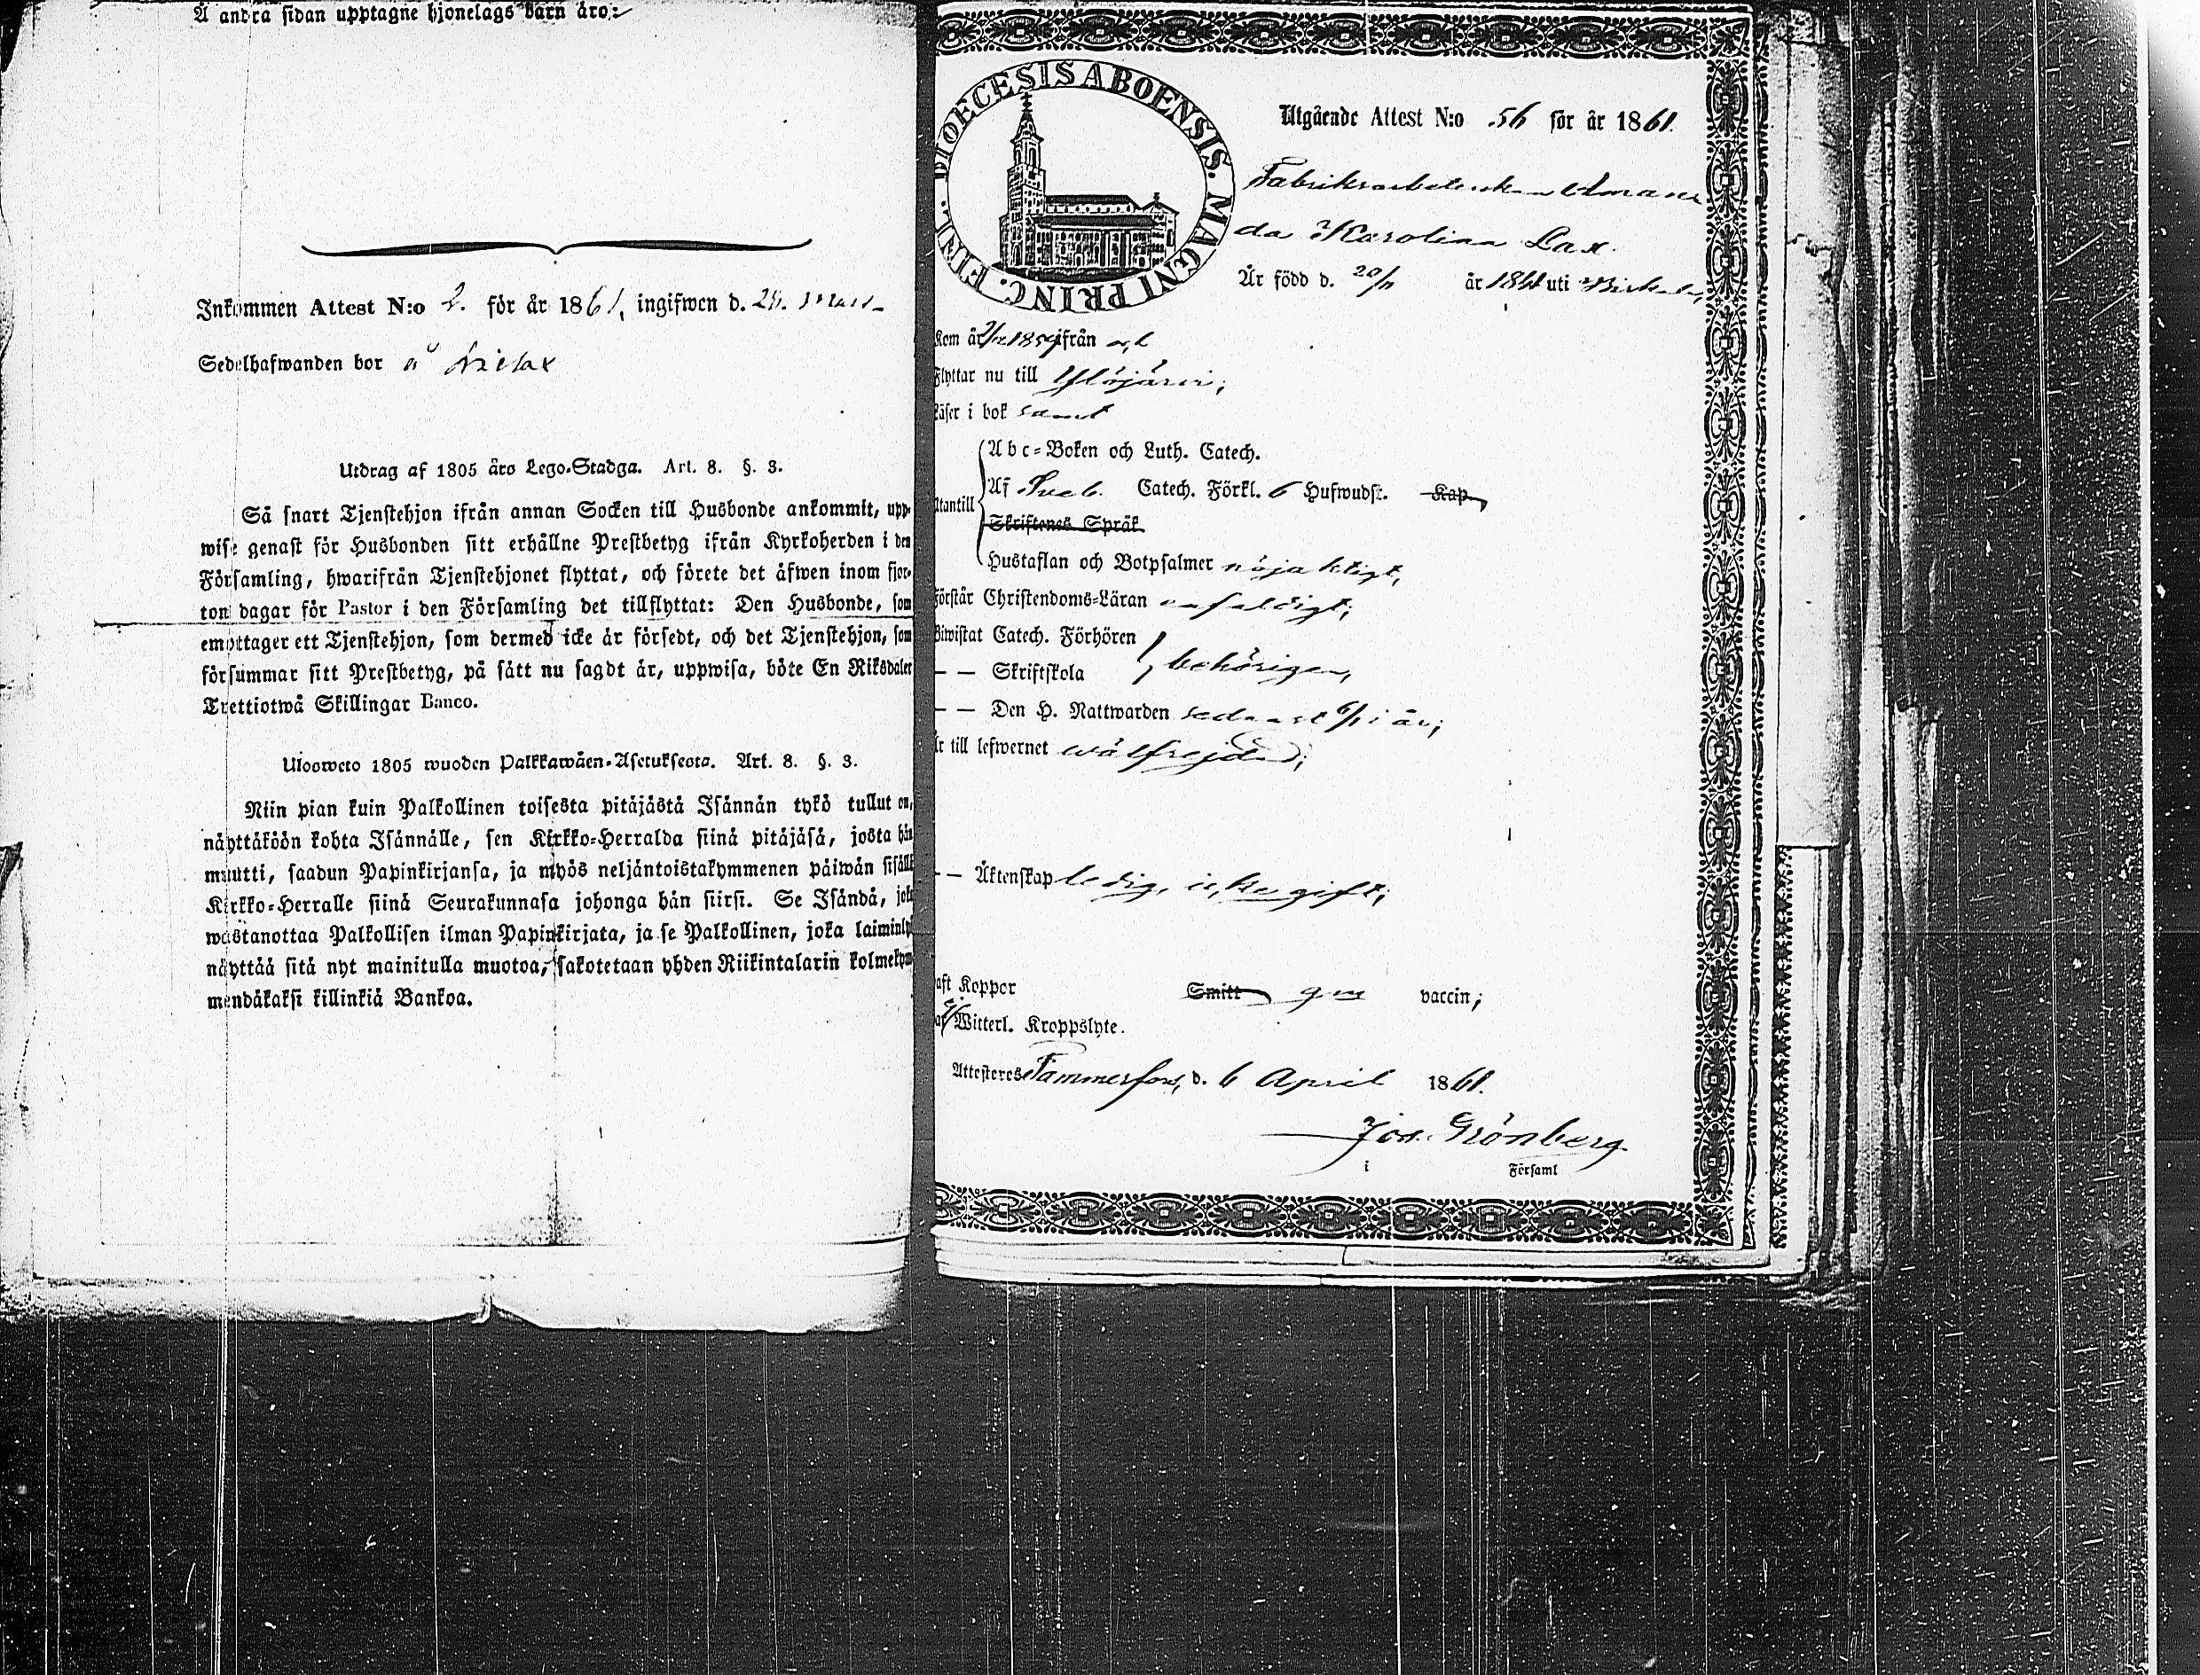 Å andra sidan upptagne hjonelags barn äro:
Inkommen Attest N:o 2. för år 1861, ingifwen d. 29. Mars
Sedelhafwanden bor å
Utdrag af 1805 års Lego-Stadga. Art. 8. §. 3.
Så snart Tjenstehjon ifrån annan Socken till Husbonde ankommit, upp-
wise genast för Husbonden sitt erhållne Prestbetyg ifrån Kyrkoherden i den
Församling, hwarifrån Tjenstehjonet flyttat, och förete det äfwen inom fjor-
ton dagar för Pastor i den Församling det tillflyttat: Den Husbonde, som
emottager ett Tjenstehjon, som dermed icke är försedt, och det Tjenstehjon, som
försummar sitt Prestbetyg, på sätt nu sagdt är, uppwisa, böte En Riksdaler
Trettiotwå Skillingar Banco.
Ulosweto 1805 wuoden Palkkawäen-Asetuksesta. Art. 8. §. 3.
Niin pian kuin Palkollinen toisesta pitäjästä Isännän tykö tullut on,
näyttäköön kohta Isännälle, sen Kirkko-Herralda siinä pitäjäsä, josta hän
muutti, saadun Papinkirjansa, ja myös neljäntoistakymmenen päiwän sisällä
Kirkko-Herralle siinä Seurakunnasa johonga hän siirsi. Se Isändä, joka
wastanottaa Palkollisen ilman Papinkirjata, ja se Palkollinen, joka laiminlyö
näyttää sitä nyt mainitulla muotoa, sakotetaan yhden Riikintalarin kolmekym-
mendäkaksi killinkiä Bankoa.
DIOECESIS ABOENSIS. MAGNI PRINC. FINL.
Utgående Attest N:o 56 för år 1861.
Fabriksarbeterskan Aman
da Karolina Lax.
Är född d. 20/11 år 1841 uti Birkala,
Kom år 1859 ifrån
Flyttar nu till Ylöjärvi;
Läser i bok samt
Abc-Boken och Luth. Catech.
Utantill Af Sveb. Catech. Förkl. 6 Hufwudst. Kap.
Skriftenes Språk
Hustaflan och Botpsalmer nöjaktigt,
Förstår Christendoms-Läran enfaldigt;
Biwistat Catech. Förhören
— — Skriftskola behörigen,
— — Den H. Nattwarden sednast 6/1 i år;
Är till lefwernet wälfrejdad;
— — Äktenskap ledig, icke gift;
Haft Koppor Smitt gm vaccin;
Witterl. Kroppslyte.
Attesteres Tammerfors, d. 6 April 1861.
Jos. Grönberg
i Församl